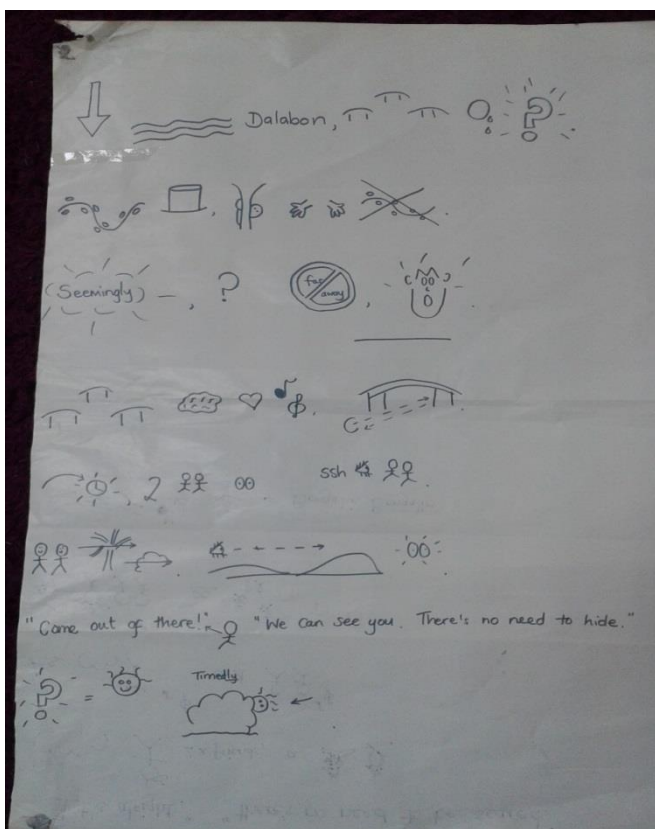 2
Dalabon, ?
Seemingly, ? far away,
2 ssh
"Come out of there!" "We can see you. There's no need to hide."
? = Timedly